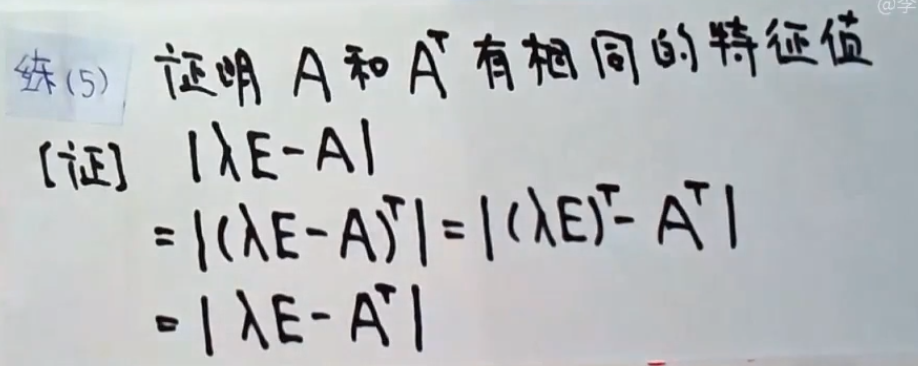 @李
练(5) 证明 A 和 Aᵀ 有相同的特征值
[证] |λE-A|
=|(λE-A)ᵀ|=|(λE)ᵀ-Aᵀ|
=|λE-Aᵀ|